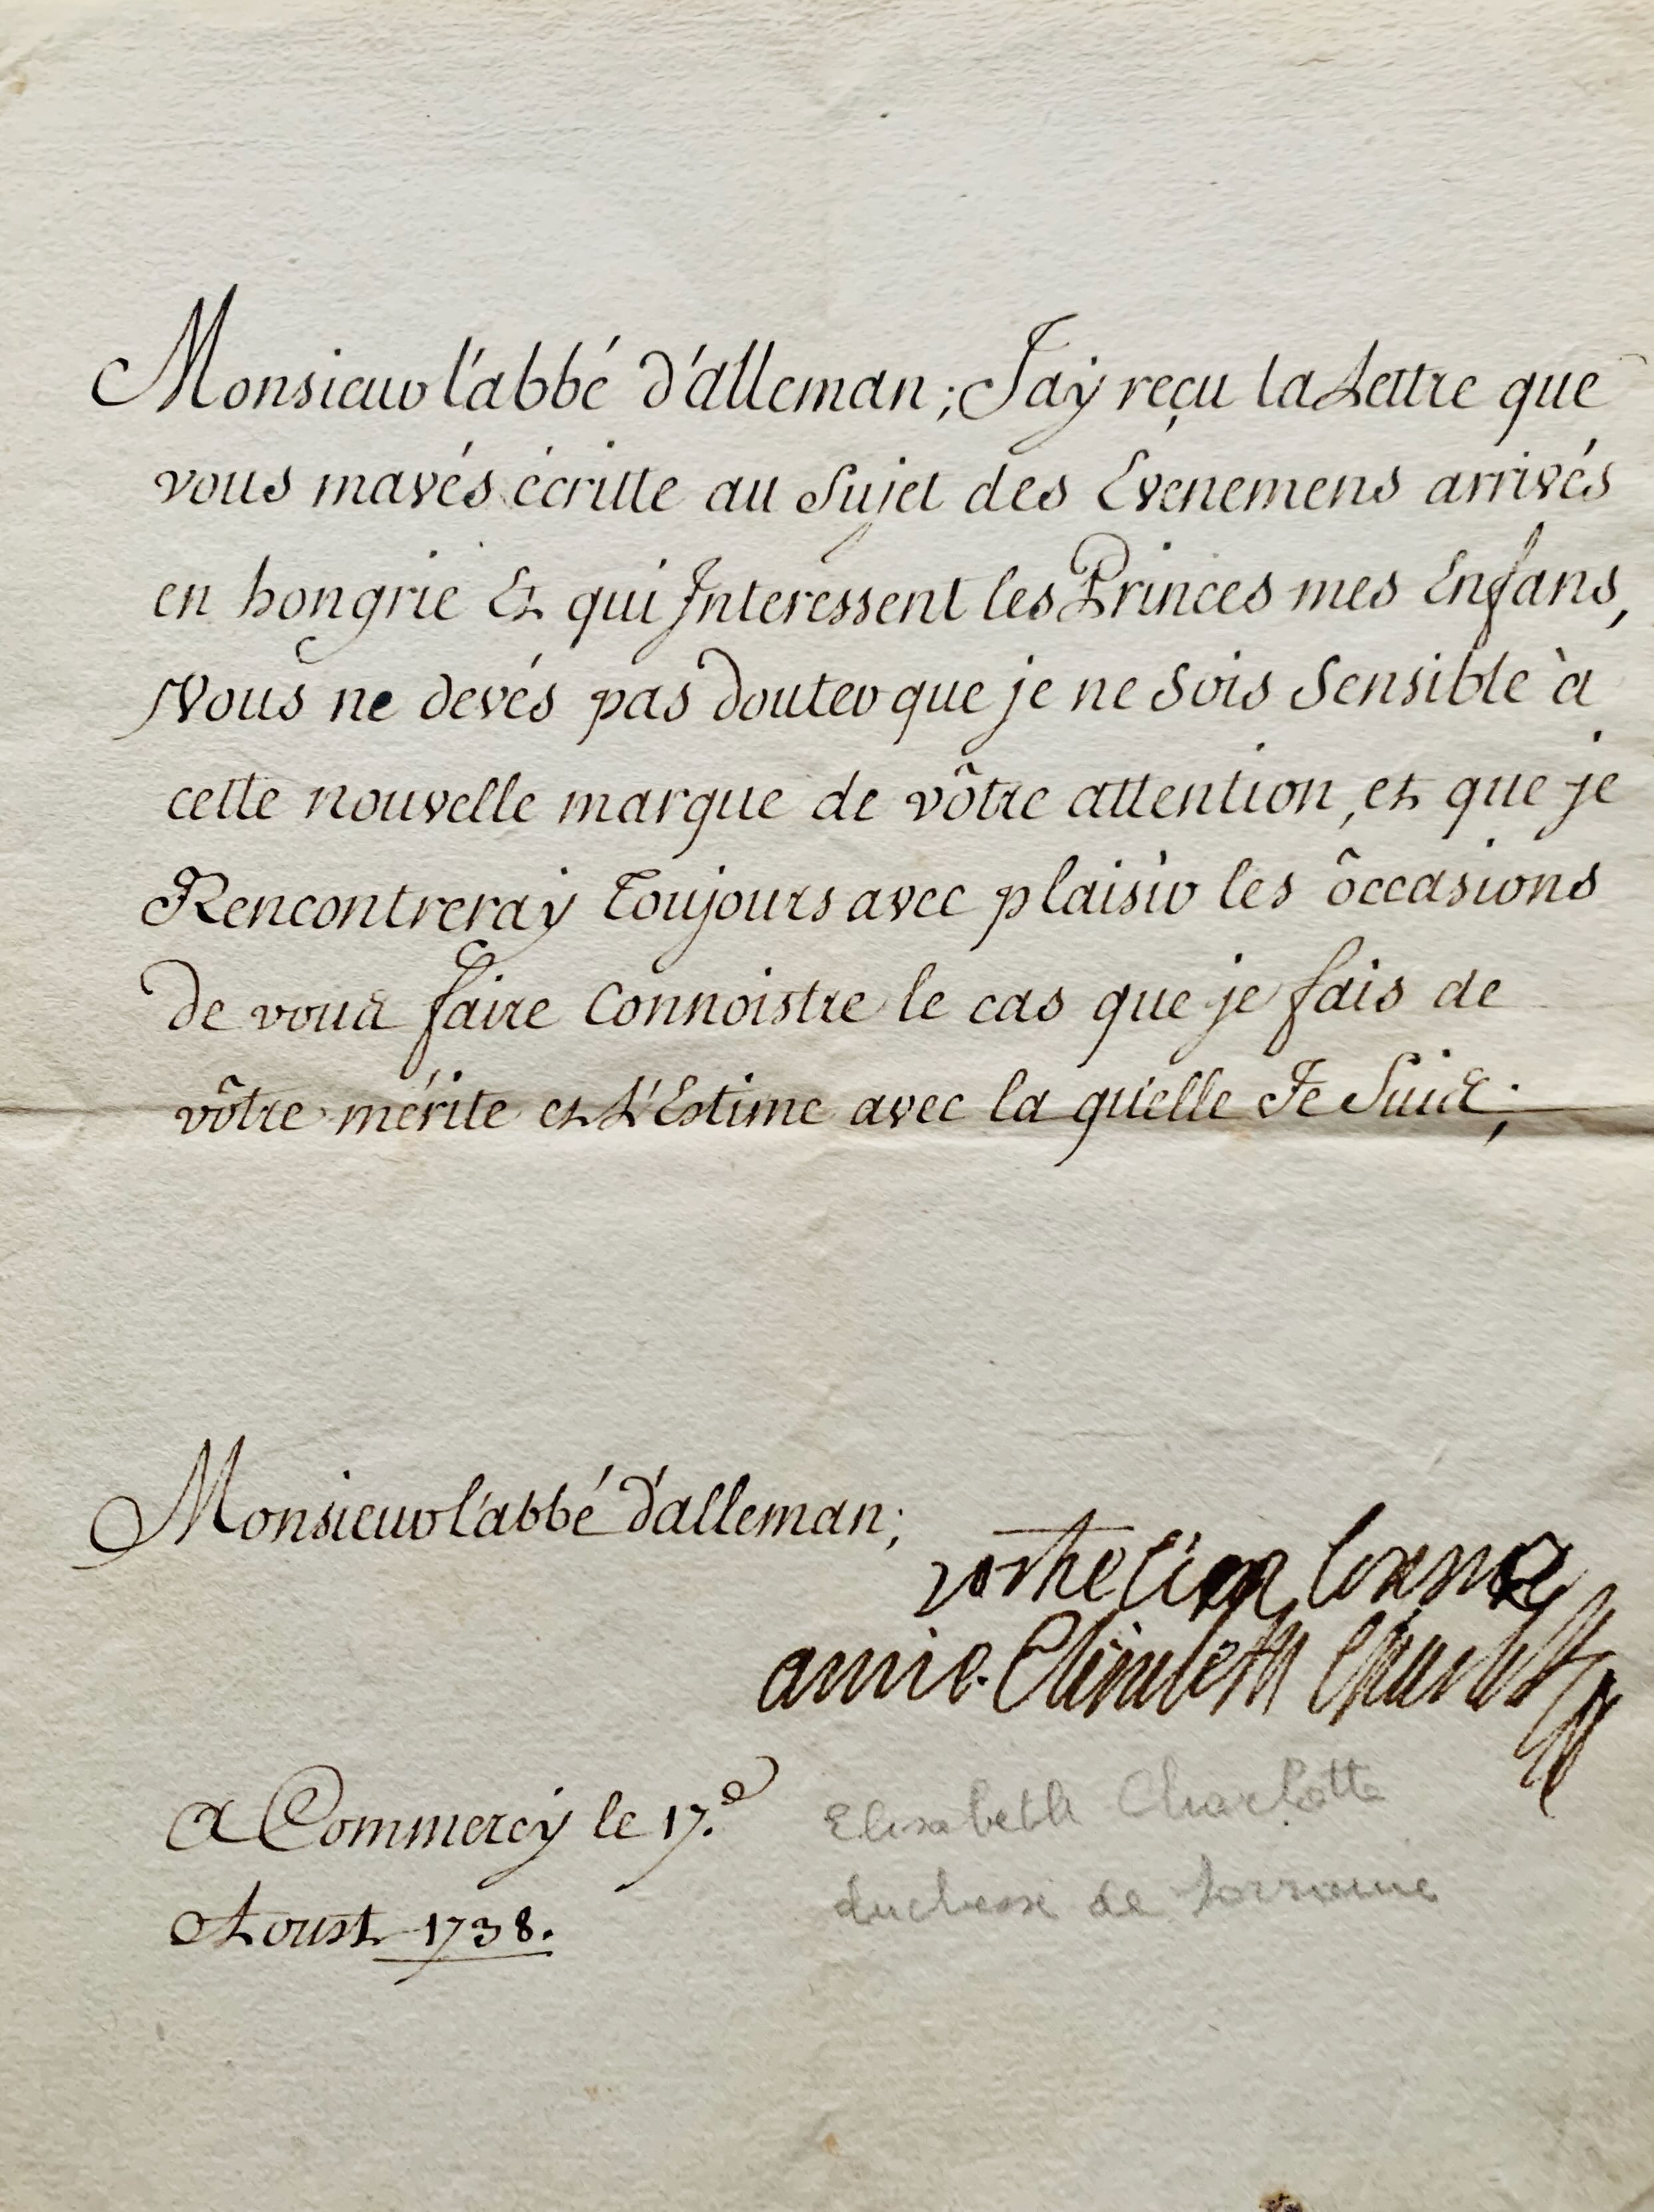 Monsieur l'abbé d'alleman; J'aÿ reçu la Lettre que
vous mavés écritte au Sujet des Evenemens arrivés
en hongrie Et qui Interessent les Princes mes Enfans,
Vous ne devés pas douter que je ne sois Sensible à
cette nouvelle marque de vôtre attention, et que je
Rencontreray Toujours avec plaisir les ôccasions
de vous faire Connoistre le cas que je fais de
vôtre mérite et L'Estime avec la qu'elle Je Suis;
Monsieur l'abbé d'alleman;
vostre bien bonne
amie. Elisabeth Charlotte
A Commercy le 17.e
Aoust 1738.
Elisabeth Charlotte
duchesse de Lorraine